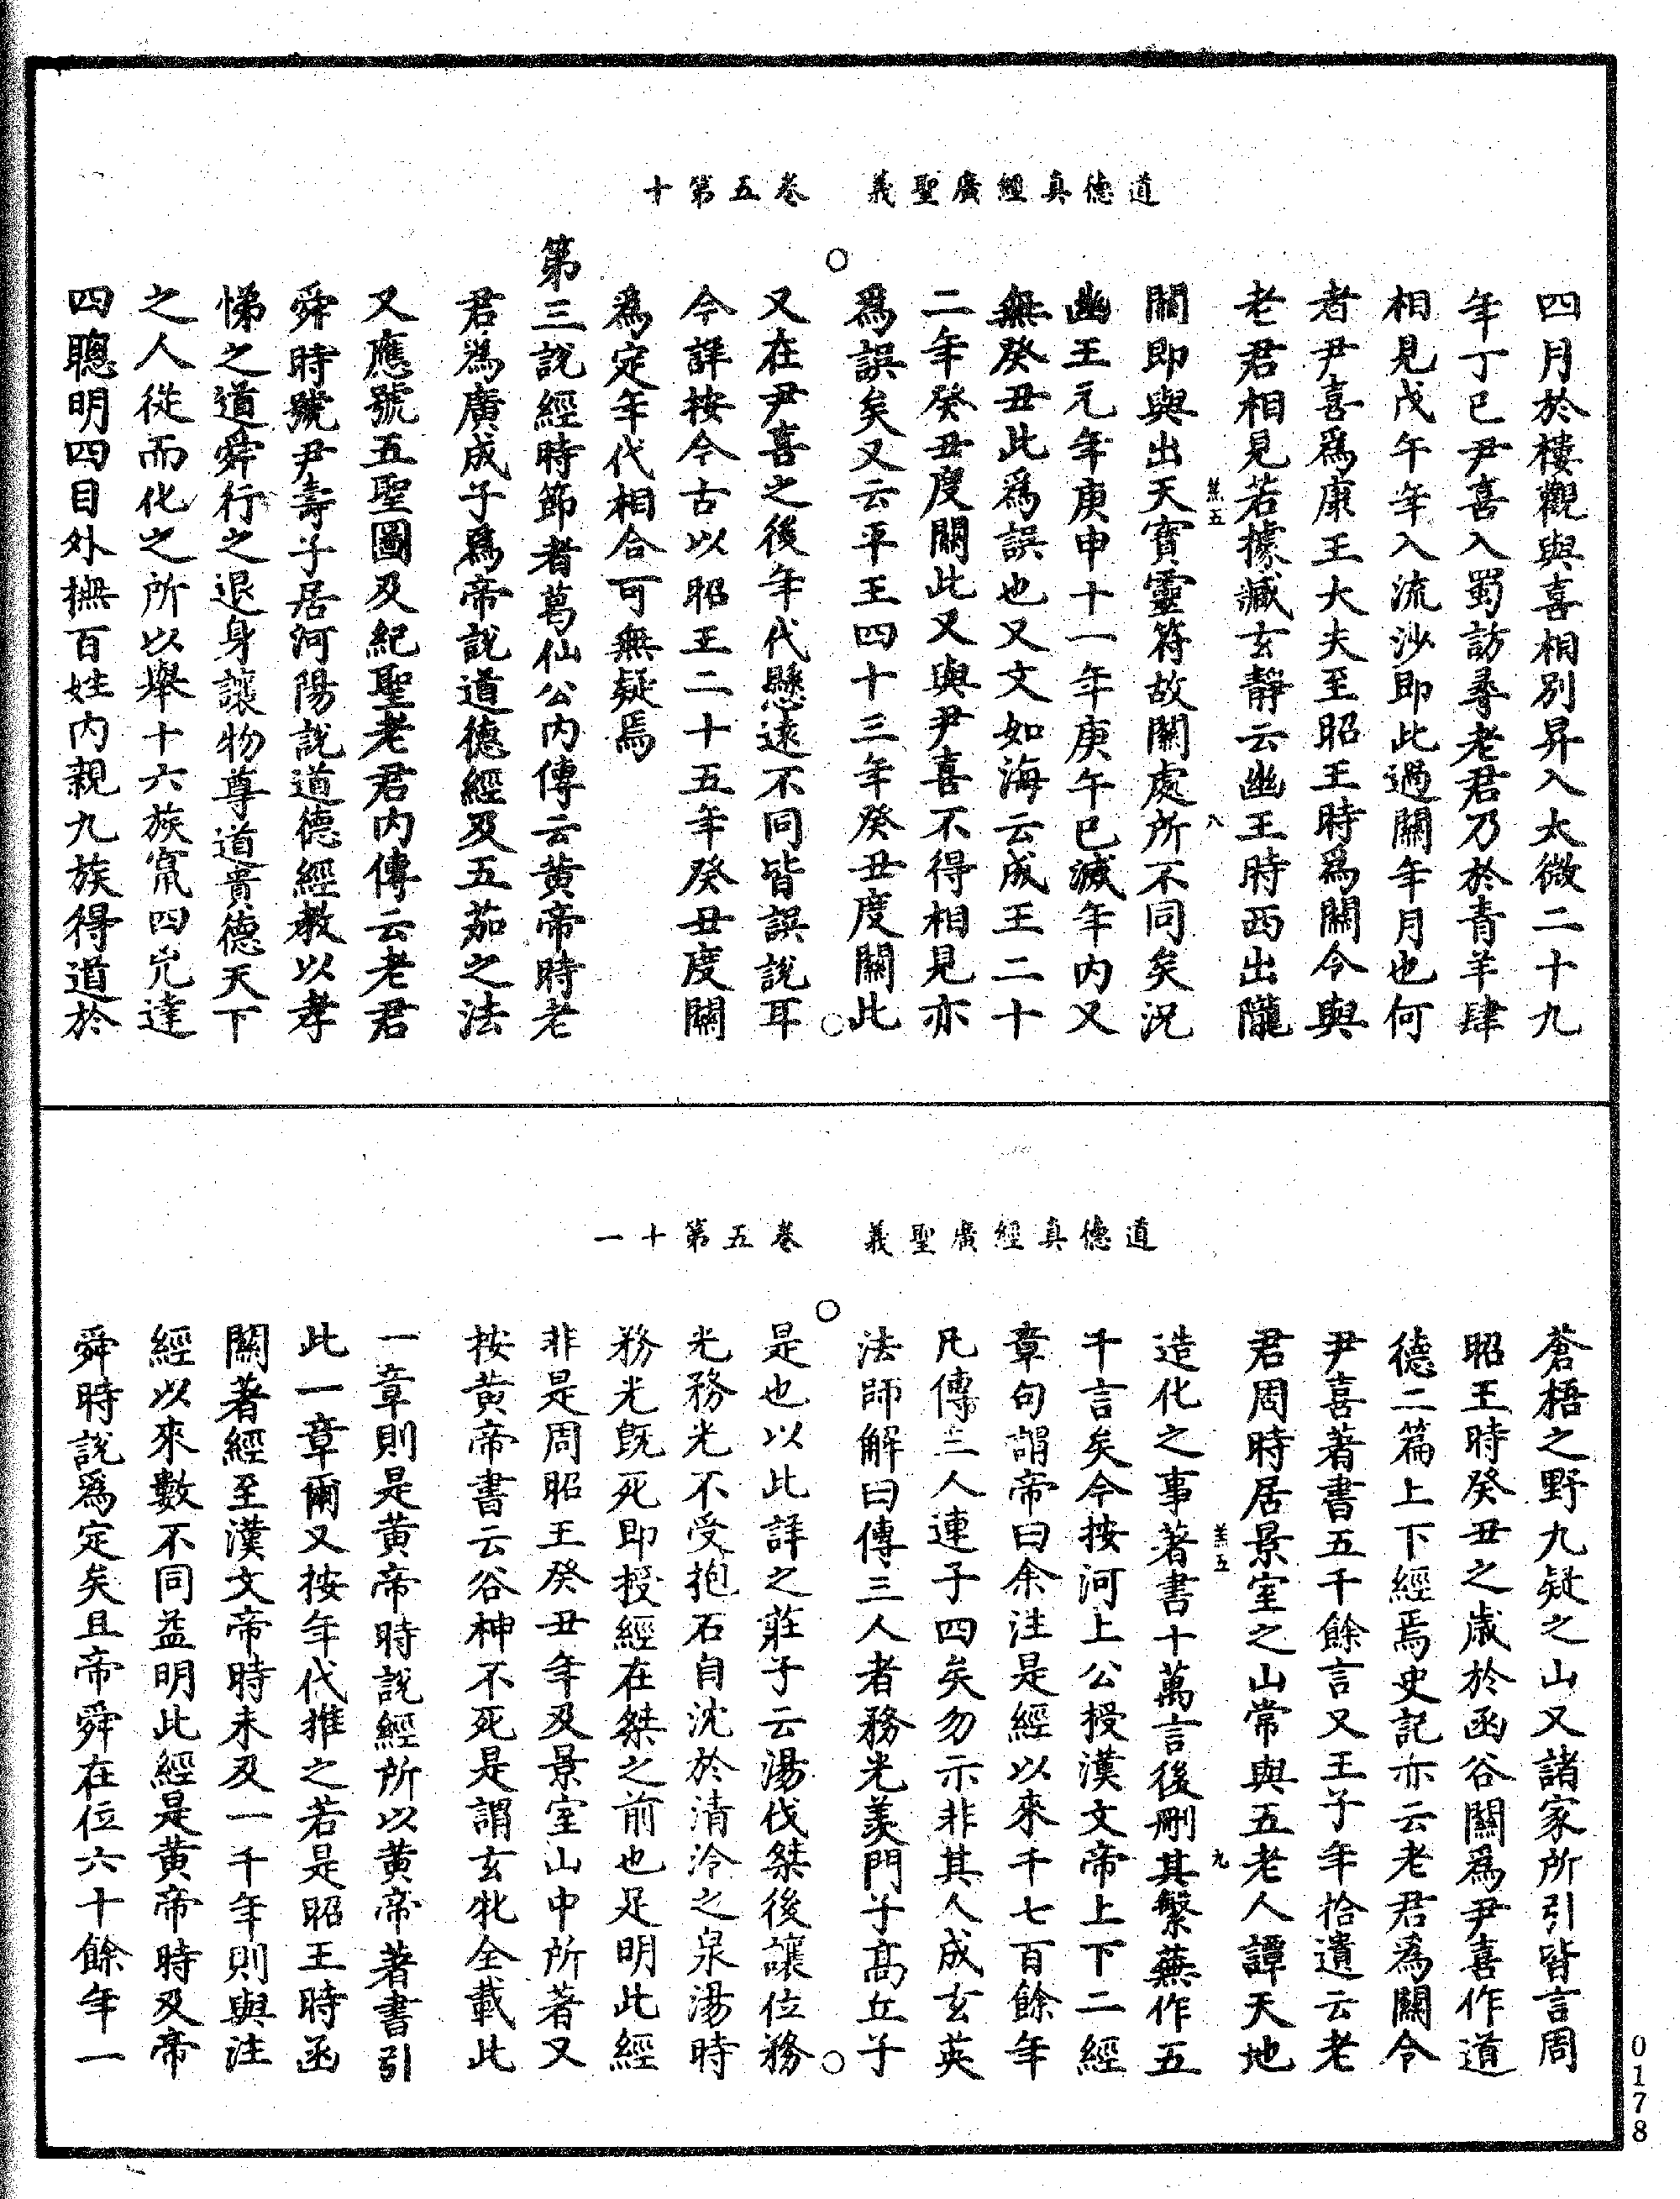 道德真經廣聖義　卷五第十
四月於樓觀與喜相別昇入太微二十九
年丁巳尹喜入蜀訪尋老君乃於青羊肆
相見戊午年入流沙即此過關年月也何
者尹喜為康王大夫至昭王時為關令與
老君相見若據藏玄靜云幽王時西出隴
羔五　八
關即與出天寶靈符故關處所不同矣況
幽王元年庚申十一年庚午已滅年內又
無癸丑此為誤也又文如海云成王二十
二年癸丑度關此又與尹喜不得相見亦
為誤矣又云平王四十三年癸丑度關此
又在尹喜之後年代懸遠不同皆誤說耳
今詳按今古以昭王二十五年癸丑度關
為定年代相合可無疑焉
第三說經時節者葛仙公內傳云黃帝時老
君為廣成子為帝說道德經及五茄之法
又應號五聖圖及紀聖老君內傳云老君
舜時號尹壽子居河陽說道德經教以孝
悌之道舜行之退身讓物尊道貴德天下
之人從而化之所以舉十六族竄四兇達
四聰明四目外撫百姓內親九族得道於
道德真經廣聖義　卷五第十一
蒼梧之野九疑之山又諸家所引皆言周
昭王時癸丑之歲於函谷關為尹喜作道
德二篇上下經焉史記亦云老君為關令
尹喜著書五千餘言又王子年拾遺云老
君周時居景室之山常與五老人譚天地
羔五　九
造化之事著書十萬言後刪其繁蕪作五
千言矣今按河上公授漢文帝上下二經
章句謂帝曰余注是經以來千七百餘年
凡傳三人連子四矣勿示非其人成玄英
法師解曰傳三人者務光羨門子高丘子
是也以此詳之莊子云湯伐桀後讓位務
光務光不受抱石自沈於清泠之泉湯時
務光既死即授經在桀之前也足明此經
非是周昭王癸丑年及景室山中所著又
按黃帝書云谷神不死是謂玄牝全載此
一章則是黃帝時說經所以黃帝著書引
此一章爾又按年代推之若是昭王時函
關著經至漢文帝時未及一千年則與注
經以來數不同益明此經是黃帝時及帝
舜時說為定矣且帝舜在位六十餘年一
0178